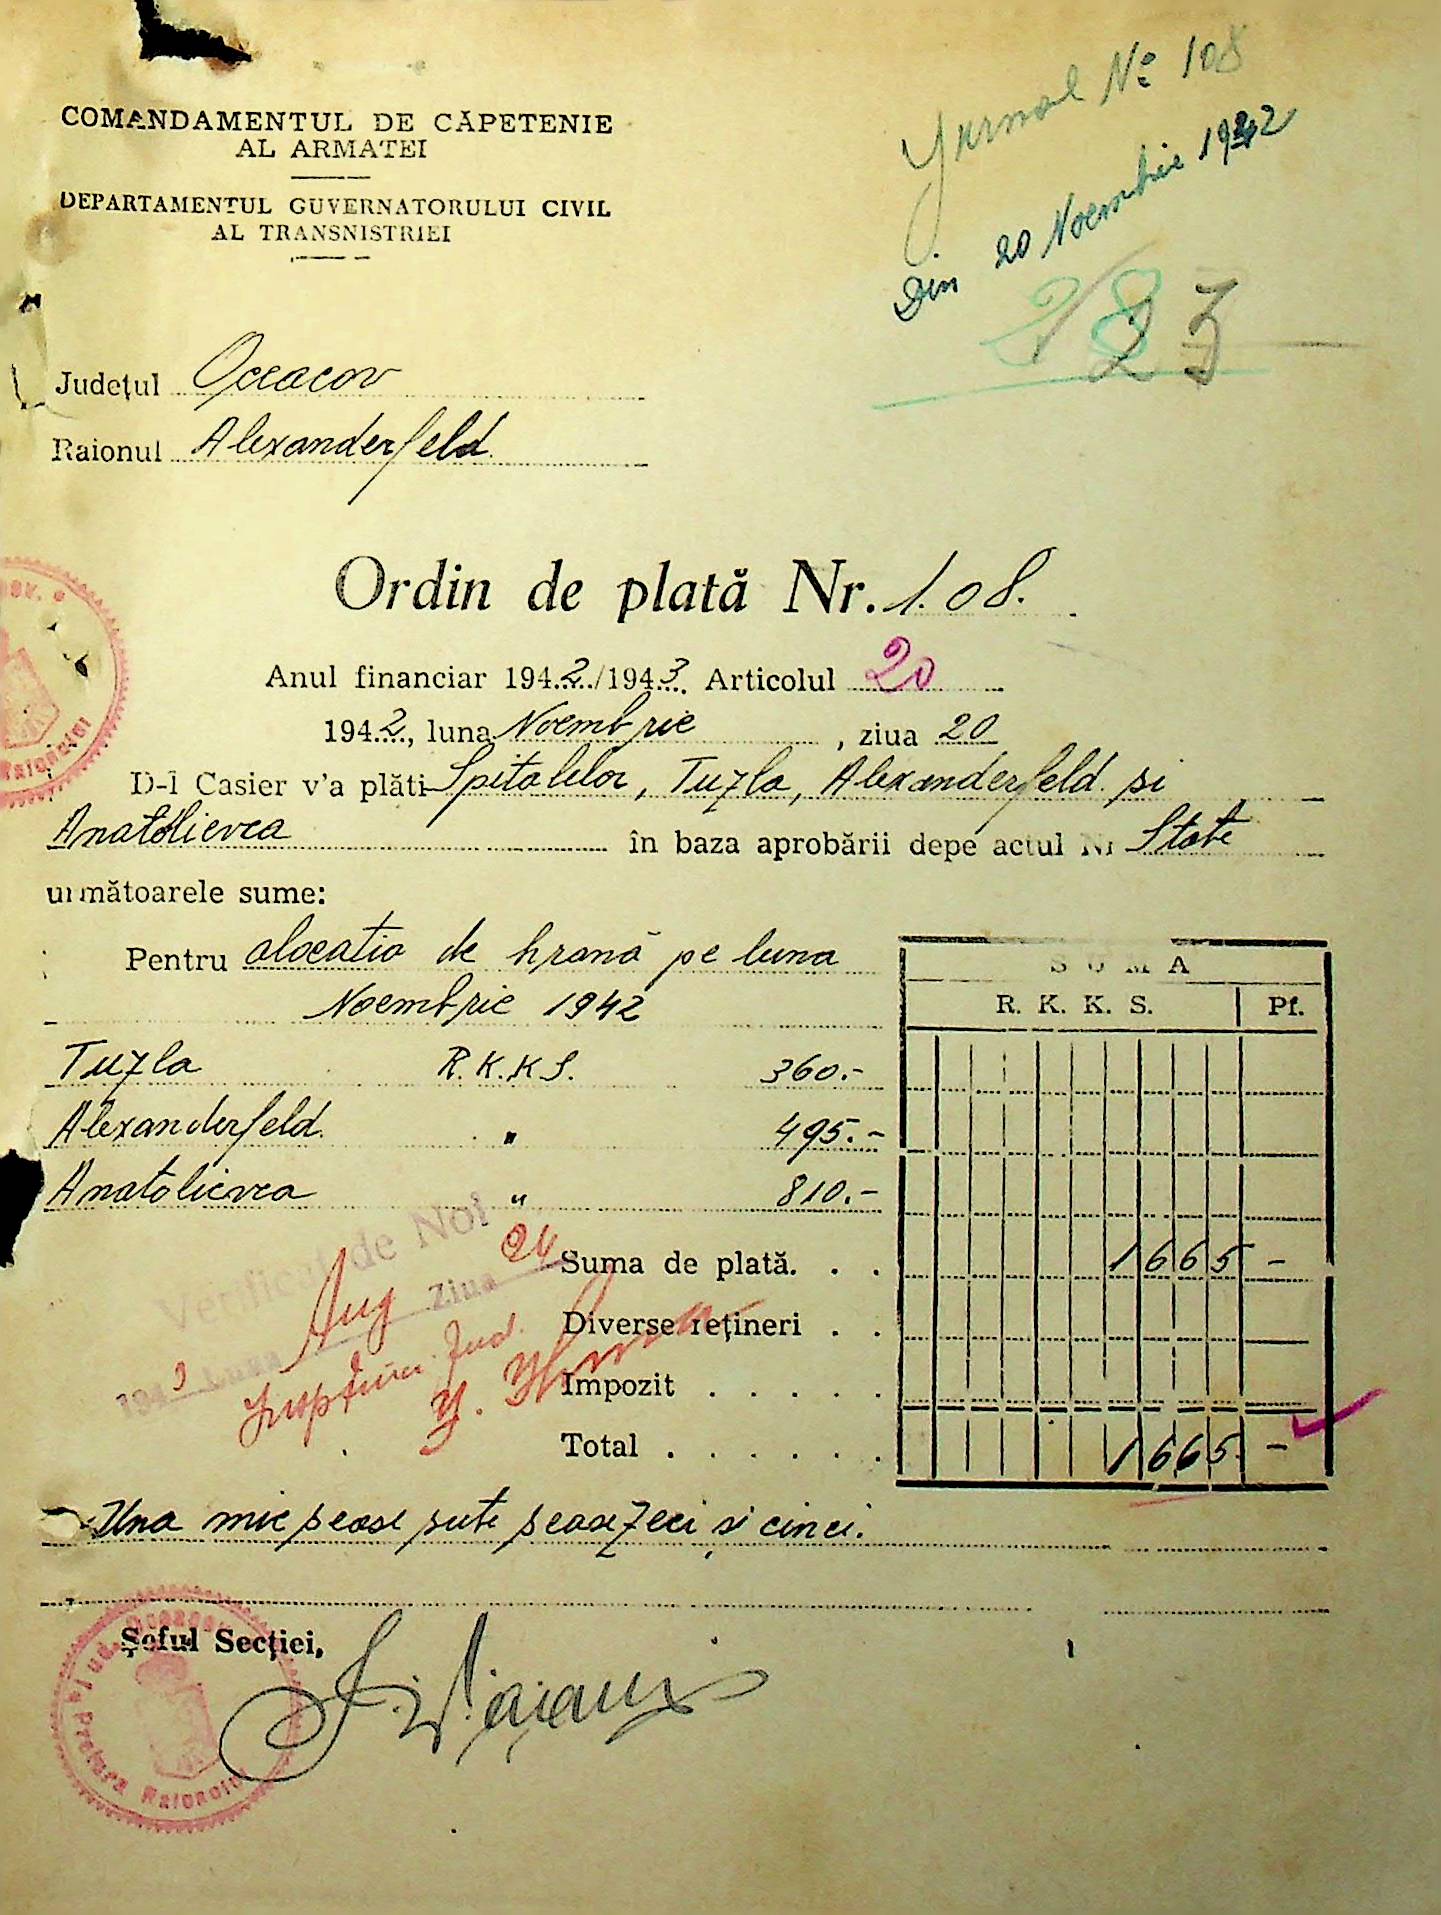 Jurnal Nº 108
Din 20 Noembrie 1942
283
COMANDAMENTUL DE CĂPETENIE
AL ARMATEI
DEPARTAMENTUL GUVERNATORULUI CIVIL
AL TRANSNISTRIEI
Județul Oceacov
Raionul Alexanderfeld
Ordin de plată Nr. 108.
Anul financiar 1942/1943. Articolul 20
1942, luna Noembrie, ziua 20
D-l Casier v'a plăti Spitalelor, Tuzla, Alexanderfeld si
Anatolievca în baza aprobării depe actul Nr State
următoarele sume:
Pentru alocatia de hrană pe luna
Noembrie 1942
SUMA
R. K. K. S. Pf.
Tuzla R.K.K.S. 360.-
Alexanderfeld. " 495.-
Anatolievca " 810.-
Verificat de Noi
1943 Luna Aug Ziua 24
Jud.
Suma de plată. . . 1665 -
Diverse rețineri . .
Impozit . . . . .
Total . . . . . . 1665 -
Una mie sease sute seasezeci și cinci.
Șeful Secției,
Jud. Oceacov
Pretura Raionului